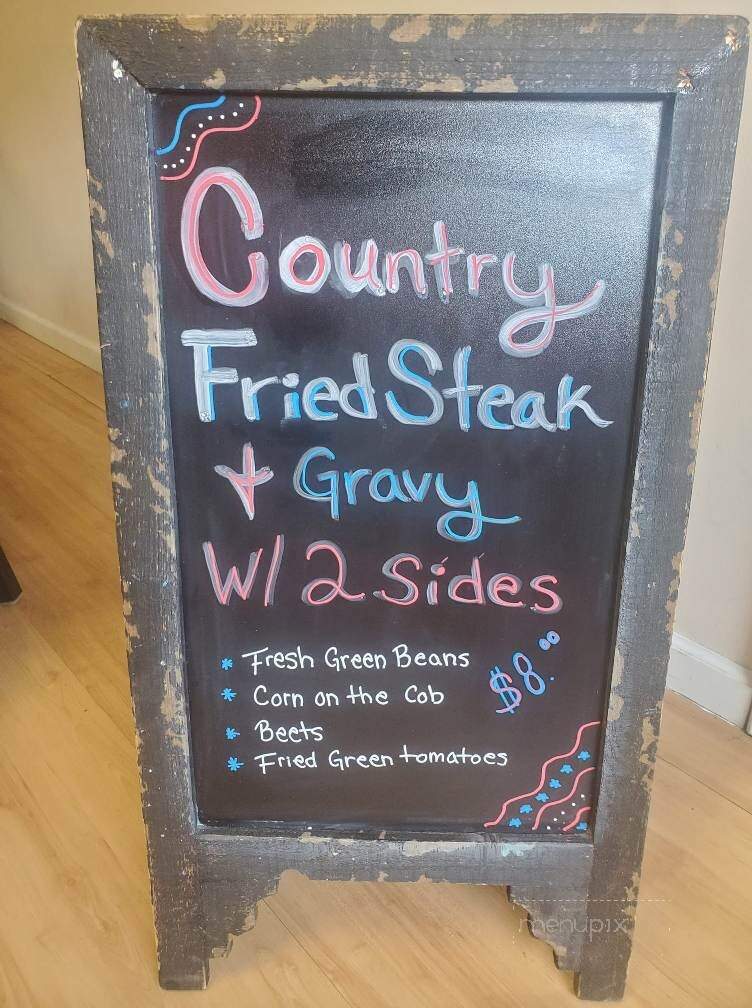 Country
Fried Steak
+ Gravy
W/ 2 Sides
* Fresh Green Beans
* Corn on the Cob
* Beets
* Fried Green tomatoes
$8.00
menupix